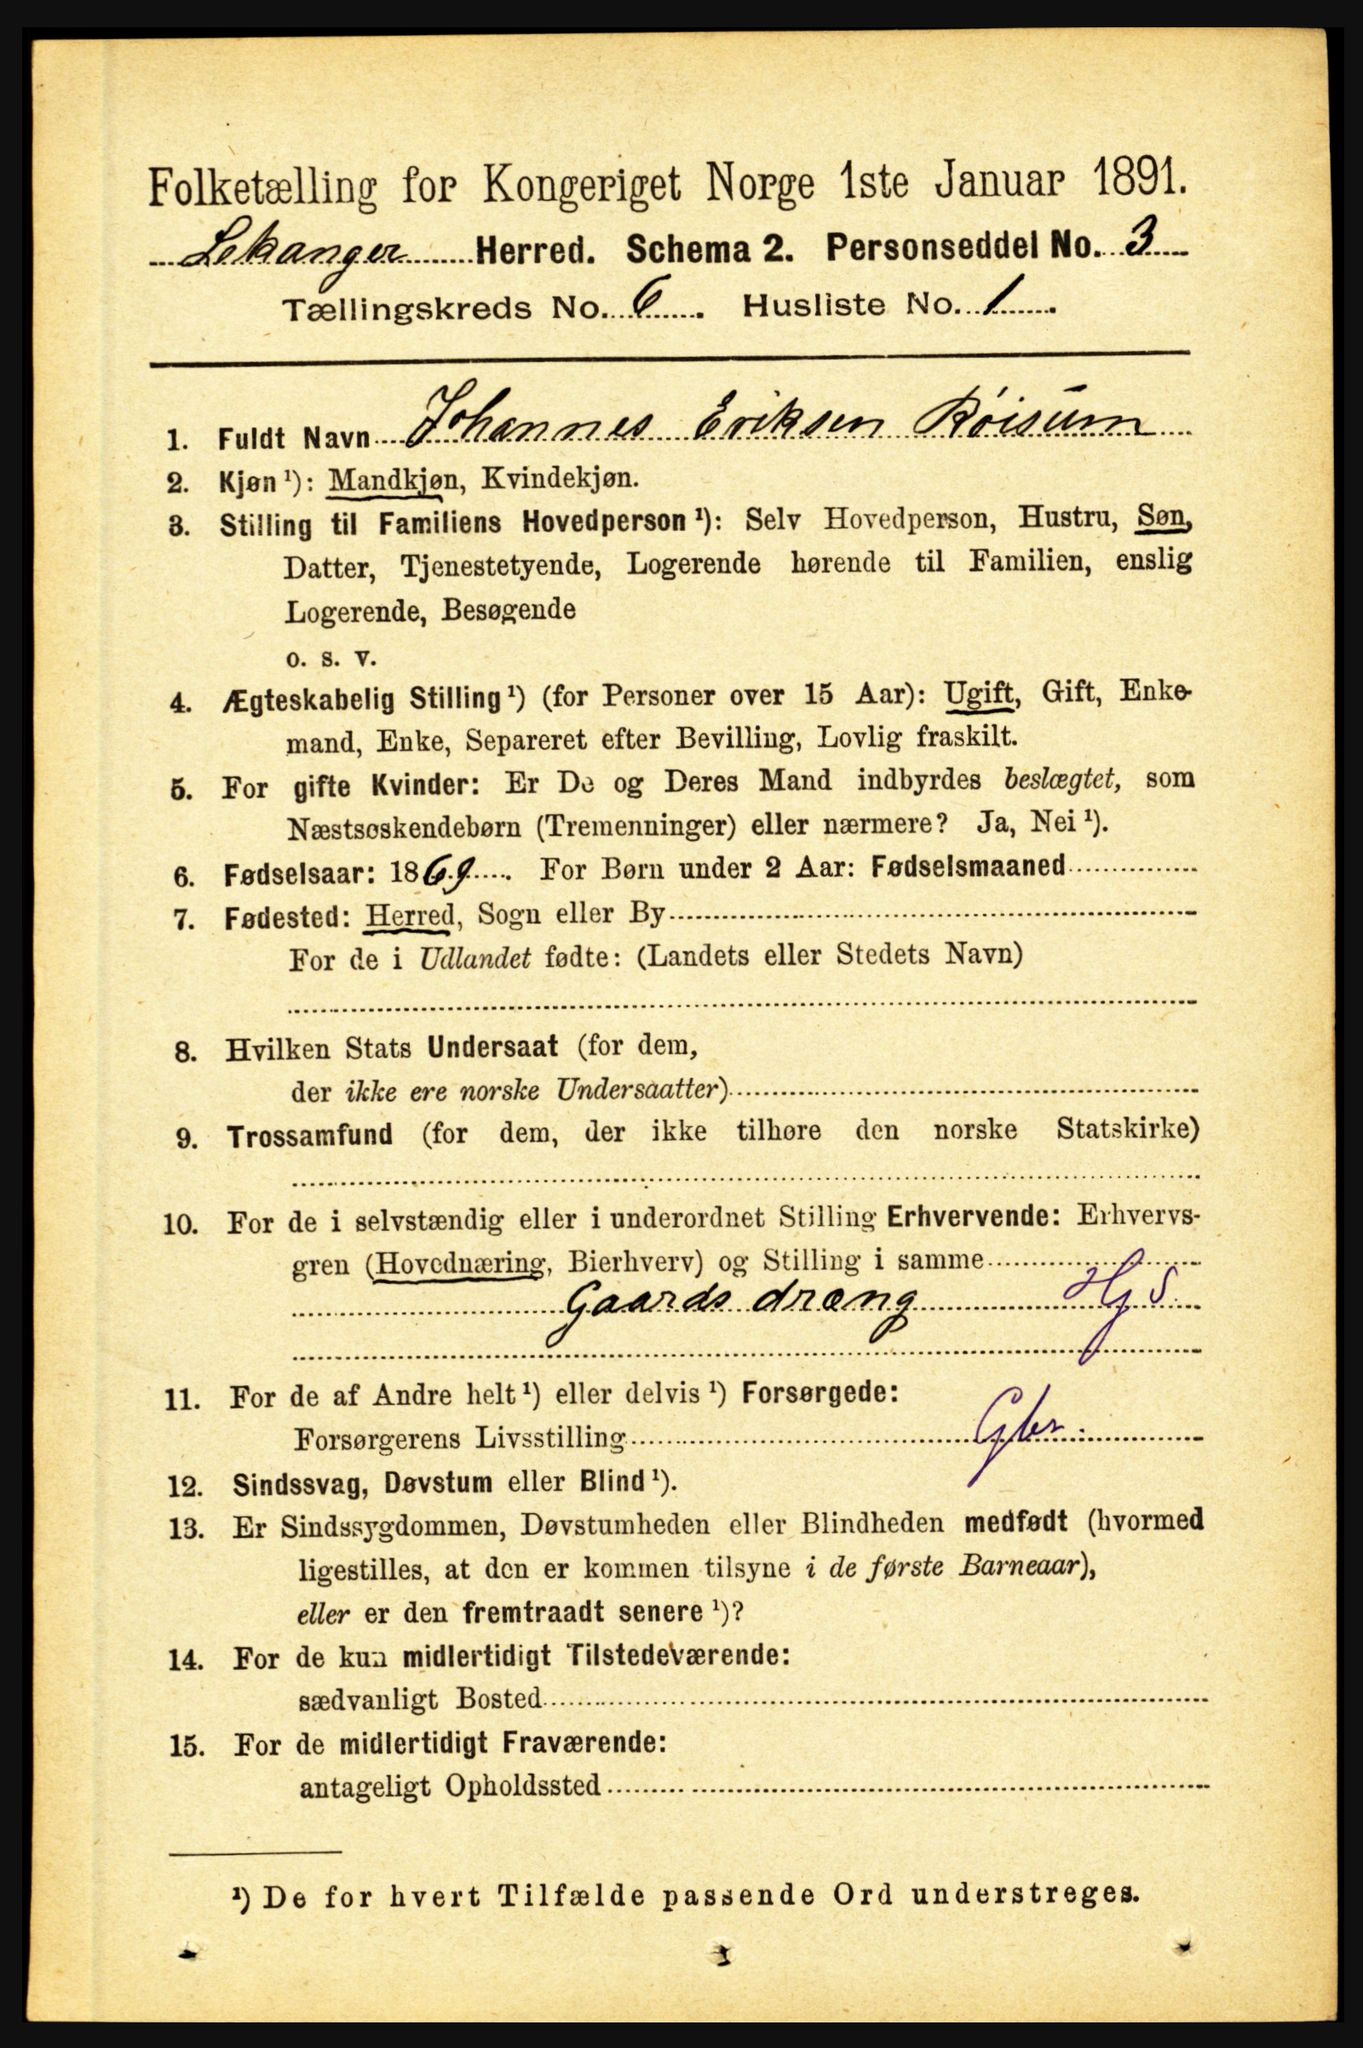 Folketælling for Kongeriget Norge 1ste Januar 1891.
Lekanger Herred. Schema 2. Personseddel No. 3
Tællingskreds No. 6. Husliste No. 1.
1. Fuldt Navn Johannes Eriksen Röisum
2. Kjøn ¹): Mandkjøn, Kvindekjøn.
3. Stilling til Familiens Hovedperson ¹): Selv Hovedperson, Hustru, Søn,
Datter, Tjenestetyende, Logerende hørende til Familien, enslig
Logerende, Besøgende
o. s. v.
4. Ægteskabelig Stilling ¹) (for Personer over 15 Aar): Ugift, Gift, Enke-
mand, Enke, Separeret efter Bevilling, Lovlig fraskilt.
5. For gifte Kvinder: Er De og Deres Mand indbyrdes beslægtet, som
Næstsøskendebørn (Tremenninger) eller nærmere? Ja, Nei ¹).
6. Fødselsaar: 1869. For Børn under 2 Aar: Fødselsmaaned
7. Fødested: Herred, Sogn eller By
For de i Udlandet fødte: (Landets eller Stedets Navn)
8. Hvilken Stats Undersaat (for dem,
der ikke ere norske Undersaatter)
9. Trossamfund (for dem, der ikke tilhøre den norske Statskirke)
10. For de i selvstændig eller i underordnet Stilling Erhvervende: Erhvervs-
gren (Hovednæring, Bierhverv) og Stilling i samme
Gaards dræng HjS
11. For de af Andre helt ¹) eller delvis ¹) Forsørgede:
Forsørgerens Livsstilling Gbr.
12. Sindssvag, Døvstum eller Blind ¹).
13. Er Sindssygdommen, Døvstumheden eller Blindheden medfødt (hvormed
ligestilles, at den er kommen tilsyne i de første Barneaar),
eller er den fremtraadt senere ¹)?
14. For de kun midlertidigt Tilstedeværende:
sædvanligt Bosted
15. For de midlertidigt Fraværende:
antageligt Opholdssted
¹) De for hvert Tilfælde passende Ord understreges.